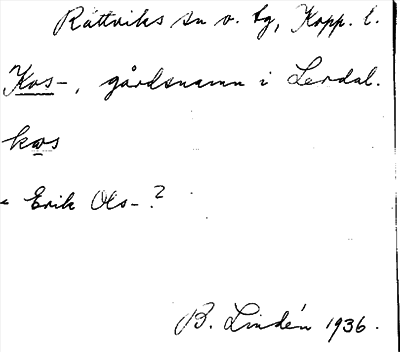 Rättviks sn o. tg, Kopp. l.
Kos-, gårdsnamn i Lerdal.
kos
< Erik Ols-?
B. Lindén 1936.